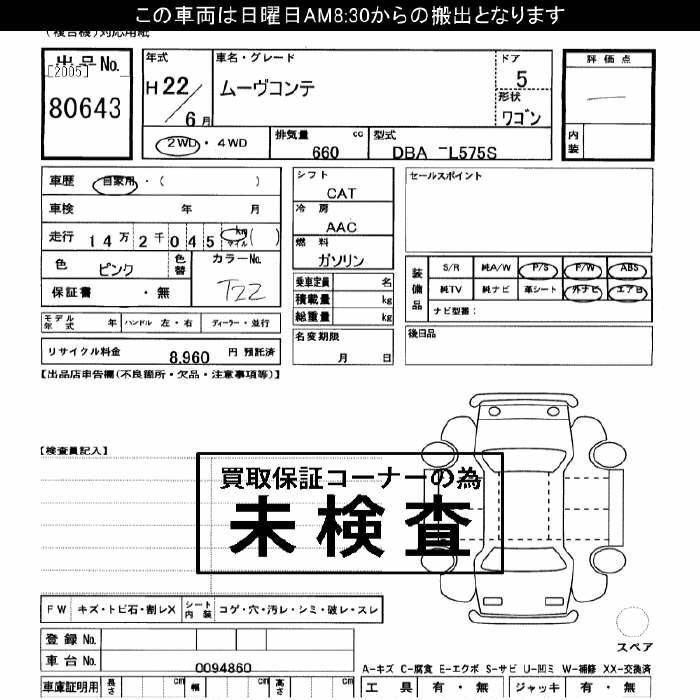 この車両は日曜日AM8:30からの搬出となります
(複合機)対応用紙
出品No.
[2005]
80643
年式
H22/6月
車名・グレード
ムーヴコンテ
ドア
5
形状
ワゴン
評価点
内装
2WD・4WD
排気量 cc
660
型式
DBA -L575S
車歴 自家用・( )
車検 年 月
走行 14万2千045 km マイル ( )
色 ピンク
色替
カラーNo.
T22
保証書 ・無
シフト
CAT
冷房
AAC
燃料
ガソリン
乗車定員 名
積載量 kg
総重量 kg
セールスポイント
装備品
S/R 純A/W P/S P/W ABS
純TV 純ナビ 革シート 外ナビ エアB
ナビ型番:
モデル年式 年 ハンドル 左・右 ディーラー・並行
名変期限
月 日
後日品
リサイクル料金 8,960 円 預託済
【出品店申告欄(不良箇所・欠品・注意事項等)】
【検査員記入】
買取保証コーナーの為
未検査
FW キズ・トビ石・割レX シート内装 コゲ・穴・汚レ・シミ・破レ・スレ
スペア
登録No.
車台No. 0094860
A-キズ C-腐食 E-エクボ S-サビ U-凹ミ W-補修 XX-交換済
車庫証明用 長さ cm 幅 cm 高さ cm
工具 有・無 ジャッキ 有・無